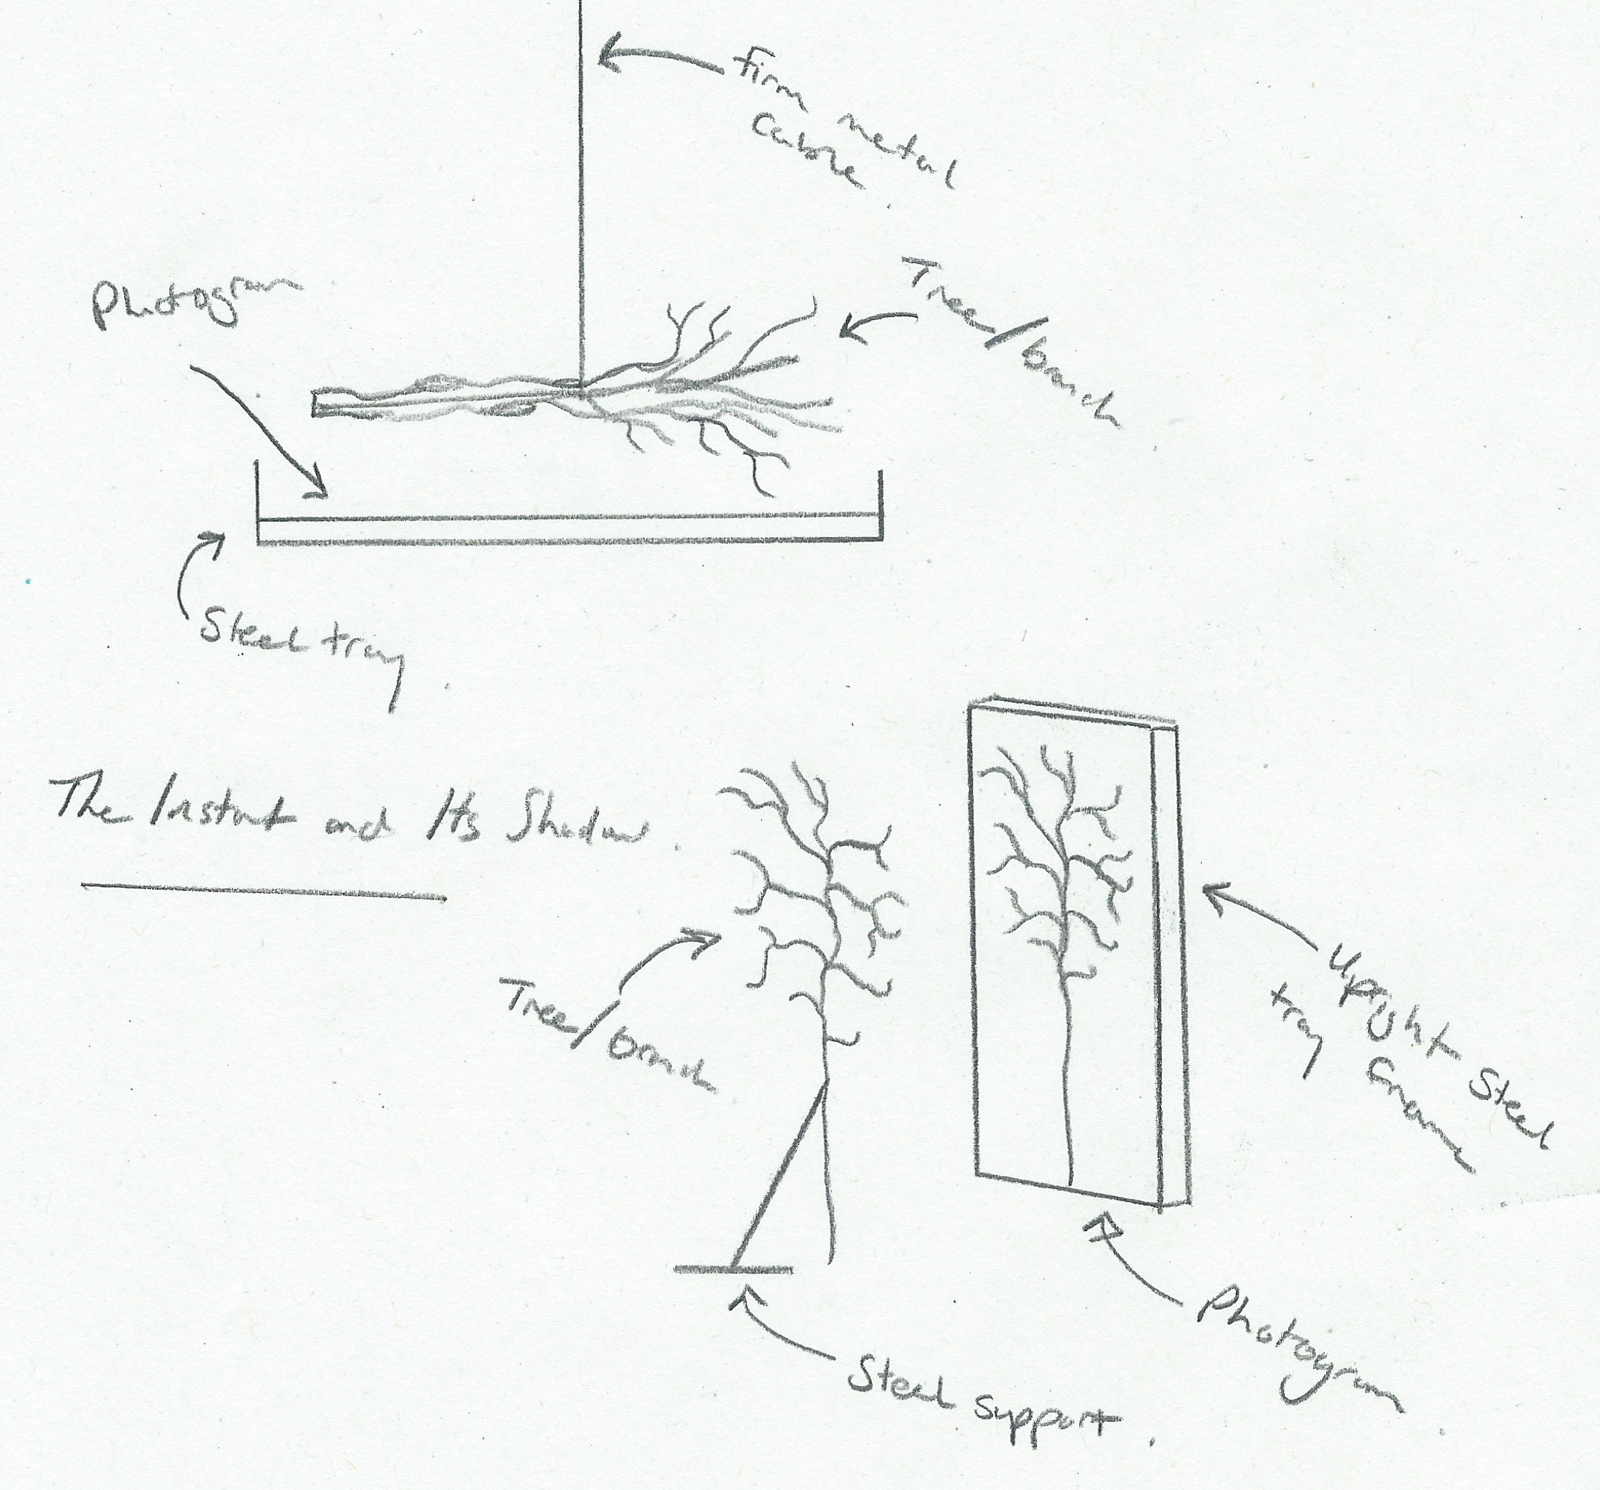 firm metal
cable
Photogram
Tree/branch
Steel tray
The Instant and Its Shadow.
Tree/branch
Upright Steel
tray frame
Photogram
Steel support.